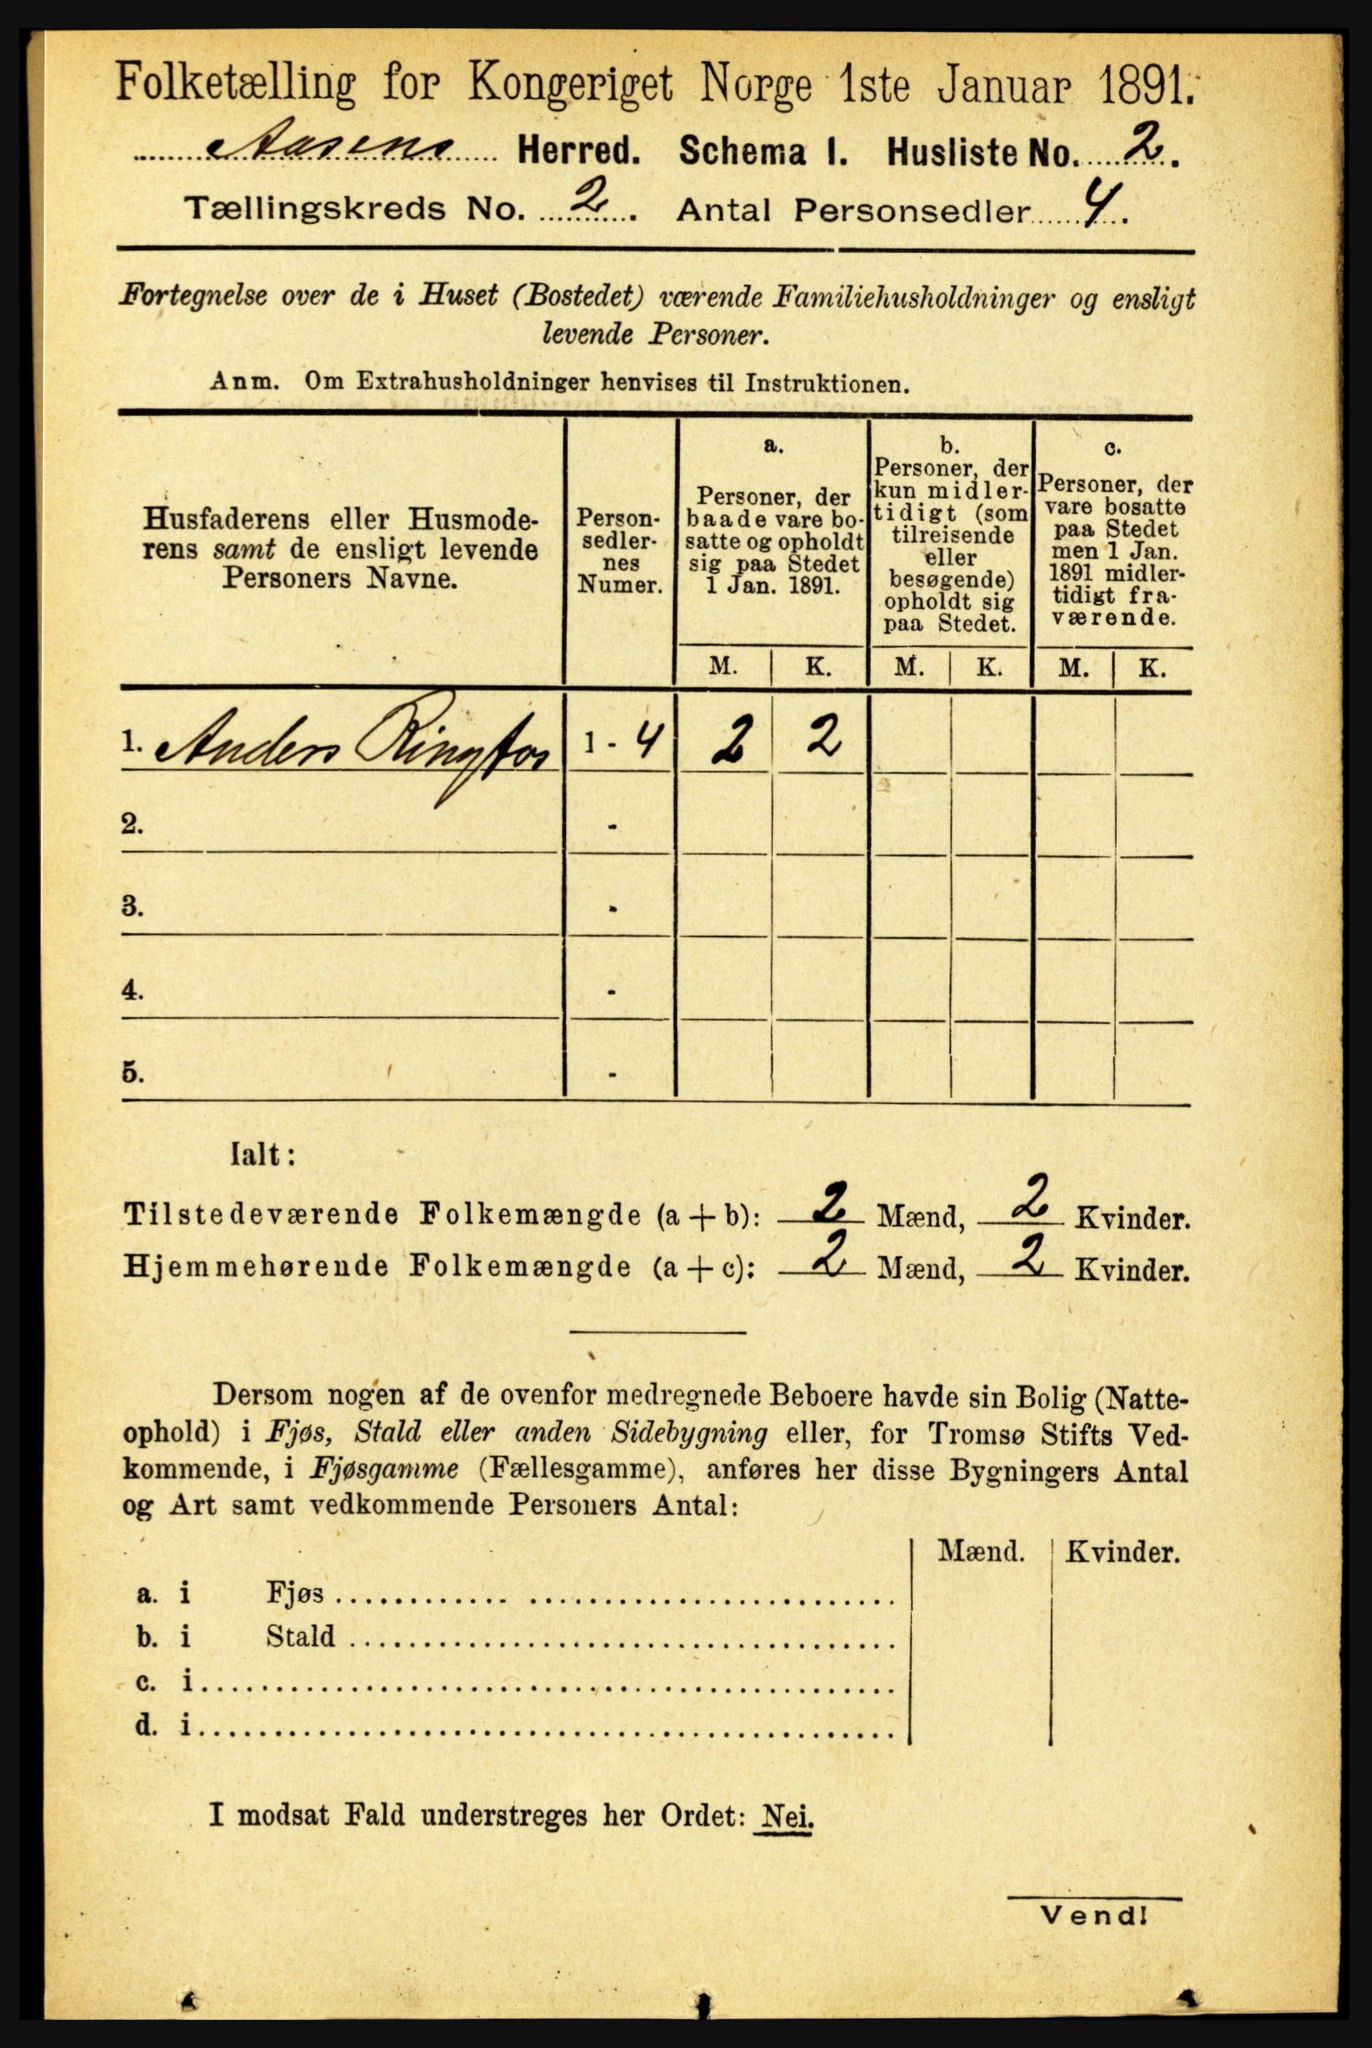 Folketælling for Kongeriget Norge 1ste Januar 1891.
Aasens Herred. Schema I. Husliste No. 2.
Tællingskreds No. 2. Antal Personsedler 4.
Fortegnelse over de i Huset (Bostedet) værende Familiehusholdninger og ensligt
levende Personer.
Anm. Om Extrahusholdninger henvises til Instruktionen.
Husfaderens eller Husmode-
rens samt de ensligt levende
Personers Navne.
Person-
sedler-
nes
Numer.
a.
Personer, der
baade vare bo-
satte og opholdt
sig paa Stedet
1 Jan. 1891.
b.
Personer, der
kun midler-
tidigt (som
tilreisende
eller
besøgende)
opholdt sig
paa Stedet.
c.
Personer, der
vare bosatte
paa Stedet
men 1 Jan.
1891 midler-
tidigt fra-
værende.
M. K. M. K. M. K.
1. Anders 1 - 4 2 2
2. -
3. -
4. -
5. -
Ialt:
Tilstedeværende Folkemængde (a + b): 2 Mænd, 2 Kvinder.
Hjemmehørende Folkemængde (a + c): 2 Mænd, 2 Kvinder.
Dersom nogen af de ovenfor medregnede Beboere havde sin Bolig (Natte-
ophold) i Fjøs, Stald eller anden Sidebygning eller, for Tromsø Stifts Ved-
kommende, i Fjøsgamme (Fællesgamme), anføres her disse Bygningers Antal
og Art samt vedkommende Personers Antal:
Mænd. Kvinder.
a. i Fjøs
b. i Stald
c. i
d. i
I modsat Fald understreges her Ordet: Nei.
Vend!